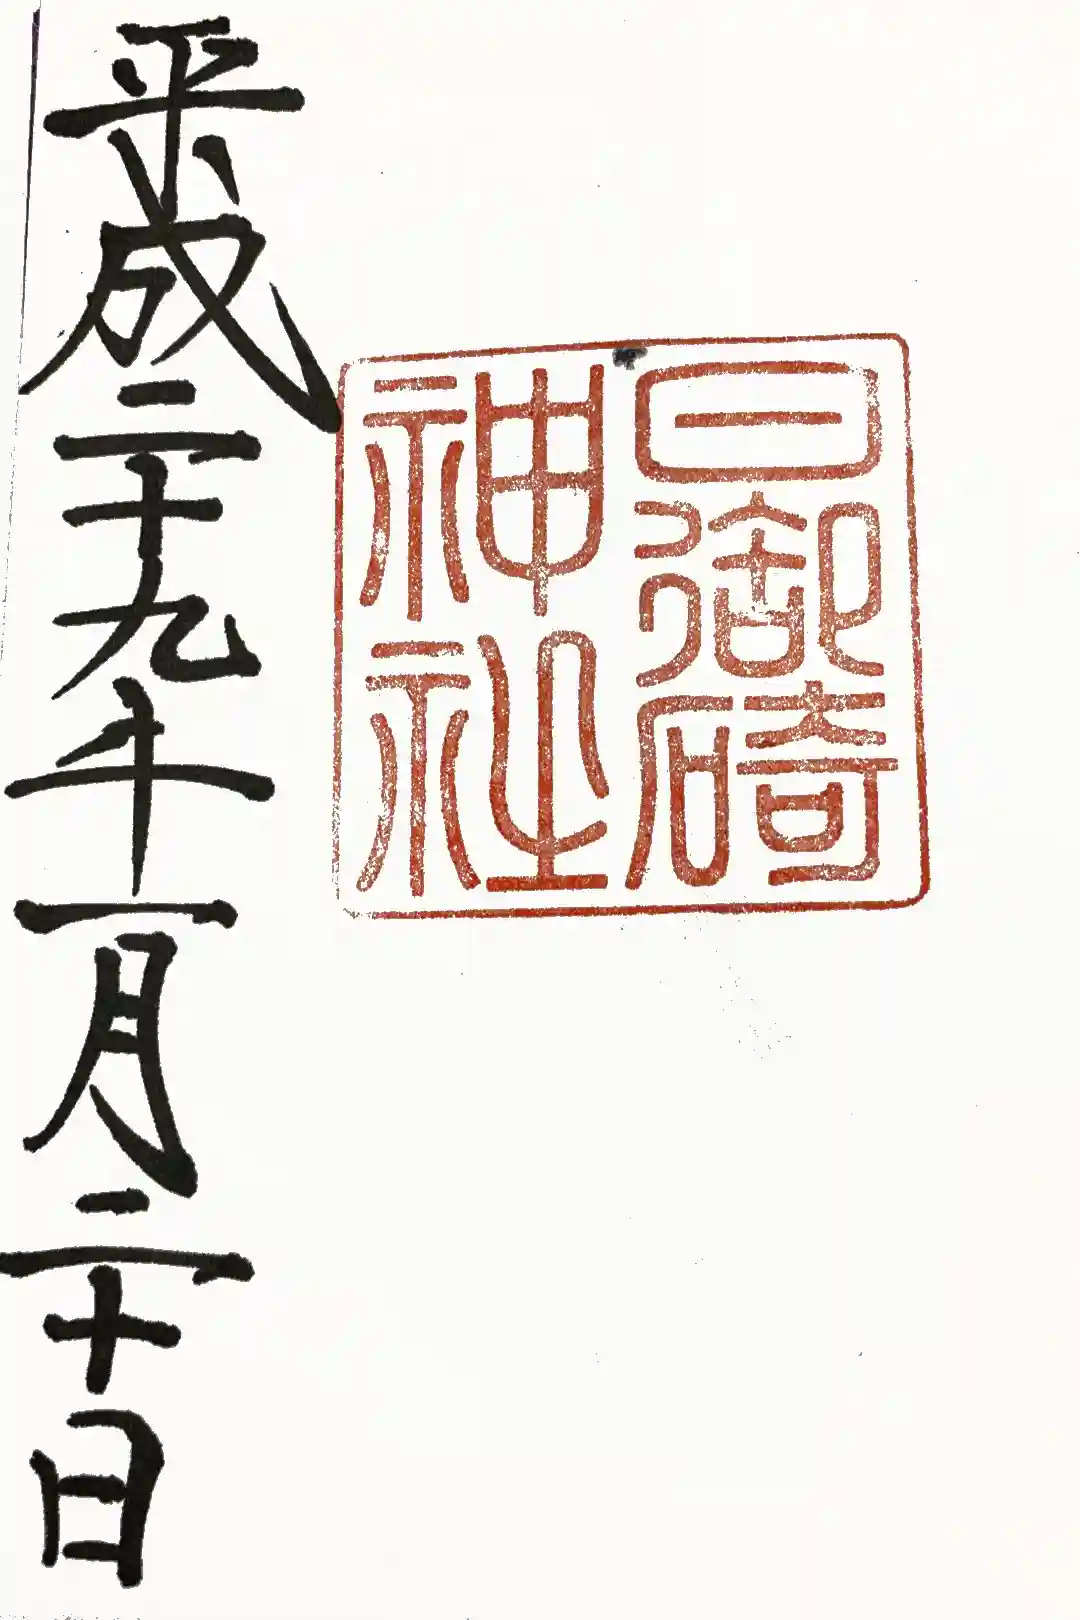 日御碕
神社
平成二十九年一月二十日